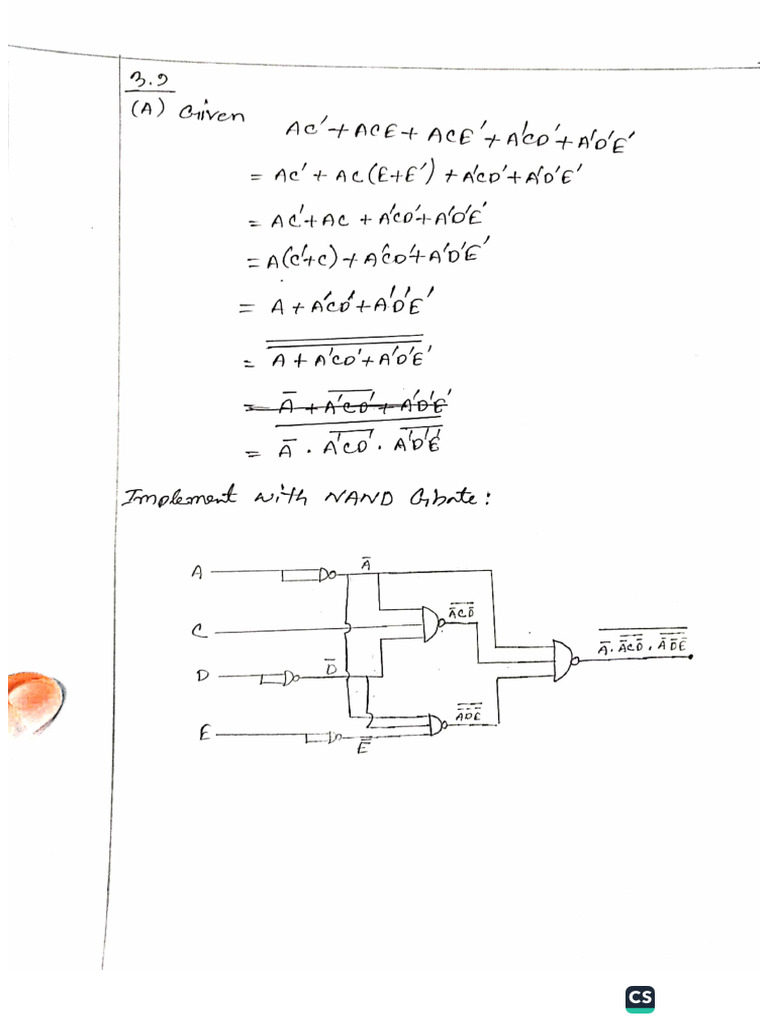 3.9
(A) Given AC' + ACE + ACE' + A'CD' + A'D'E'
= AC' + AC(E+E') + A'CD' + A'D'E'
= AC' + AC + A'CD' + A'D'E'
= A(C'+C) + A'CD' + A'D'E'
= A + A'CD' + A'D'E'
= A + A'CD' + A'D'E'
= A̅ + A'CD' + A'D'E'
= A̅ . A'CD' . A'D'E'
Implement with NAND Gate:
A A̅
C A̅CD̅
A̅ . A̅CD̅ . A̅D̅E̅
D D̅
E E̅ A̅D̅E̅
CS